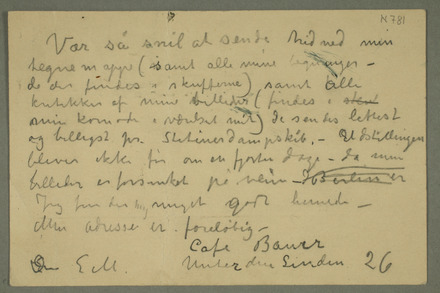 N 781
Vær så snil at sende hid ned min
tegnemappe (samt alle mine tegninger –
de der findes i skufferne) samt alle
kritikker af mine billeder (findes i
min komode i værelset mit) de sendes lettest
og billigst pr. Stettinerdampskib. – Udstillingen
bliver ikke før om en fjorten dage – da mine
billeder er forsinket på veien – er
Jeg meget godt hernede –
Min adresse er foreløbig –
Cafe Bauer
Din E.M. Unter den Linden 26